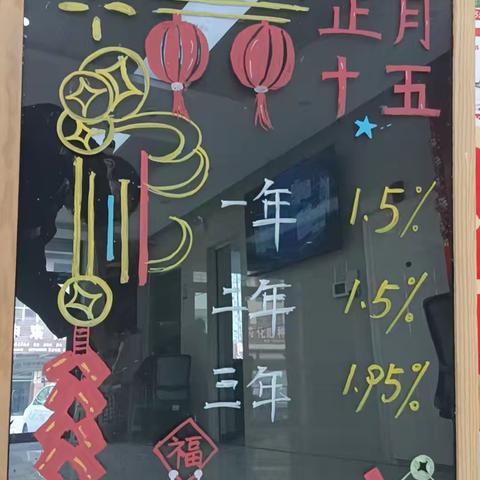 正月
十五
一年 1.5%
二年 1.5%
三年 1.95%
福